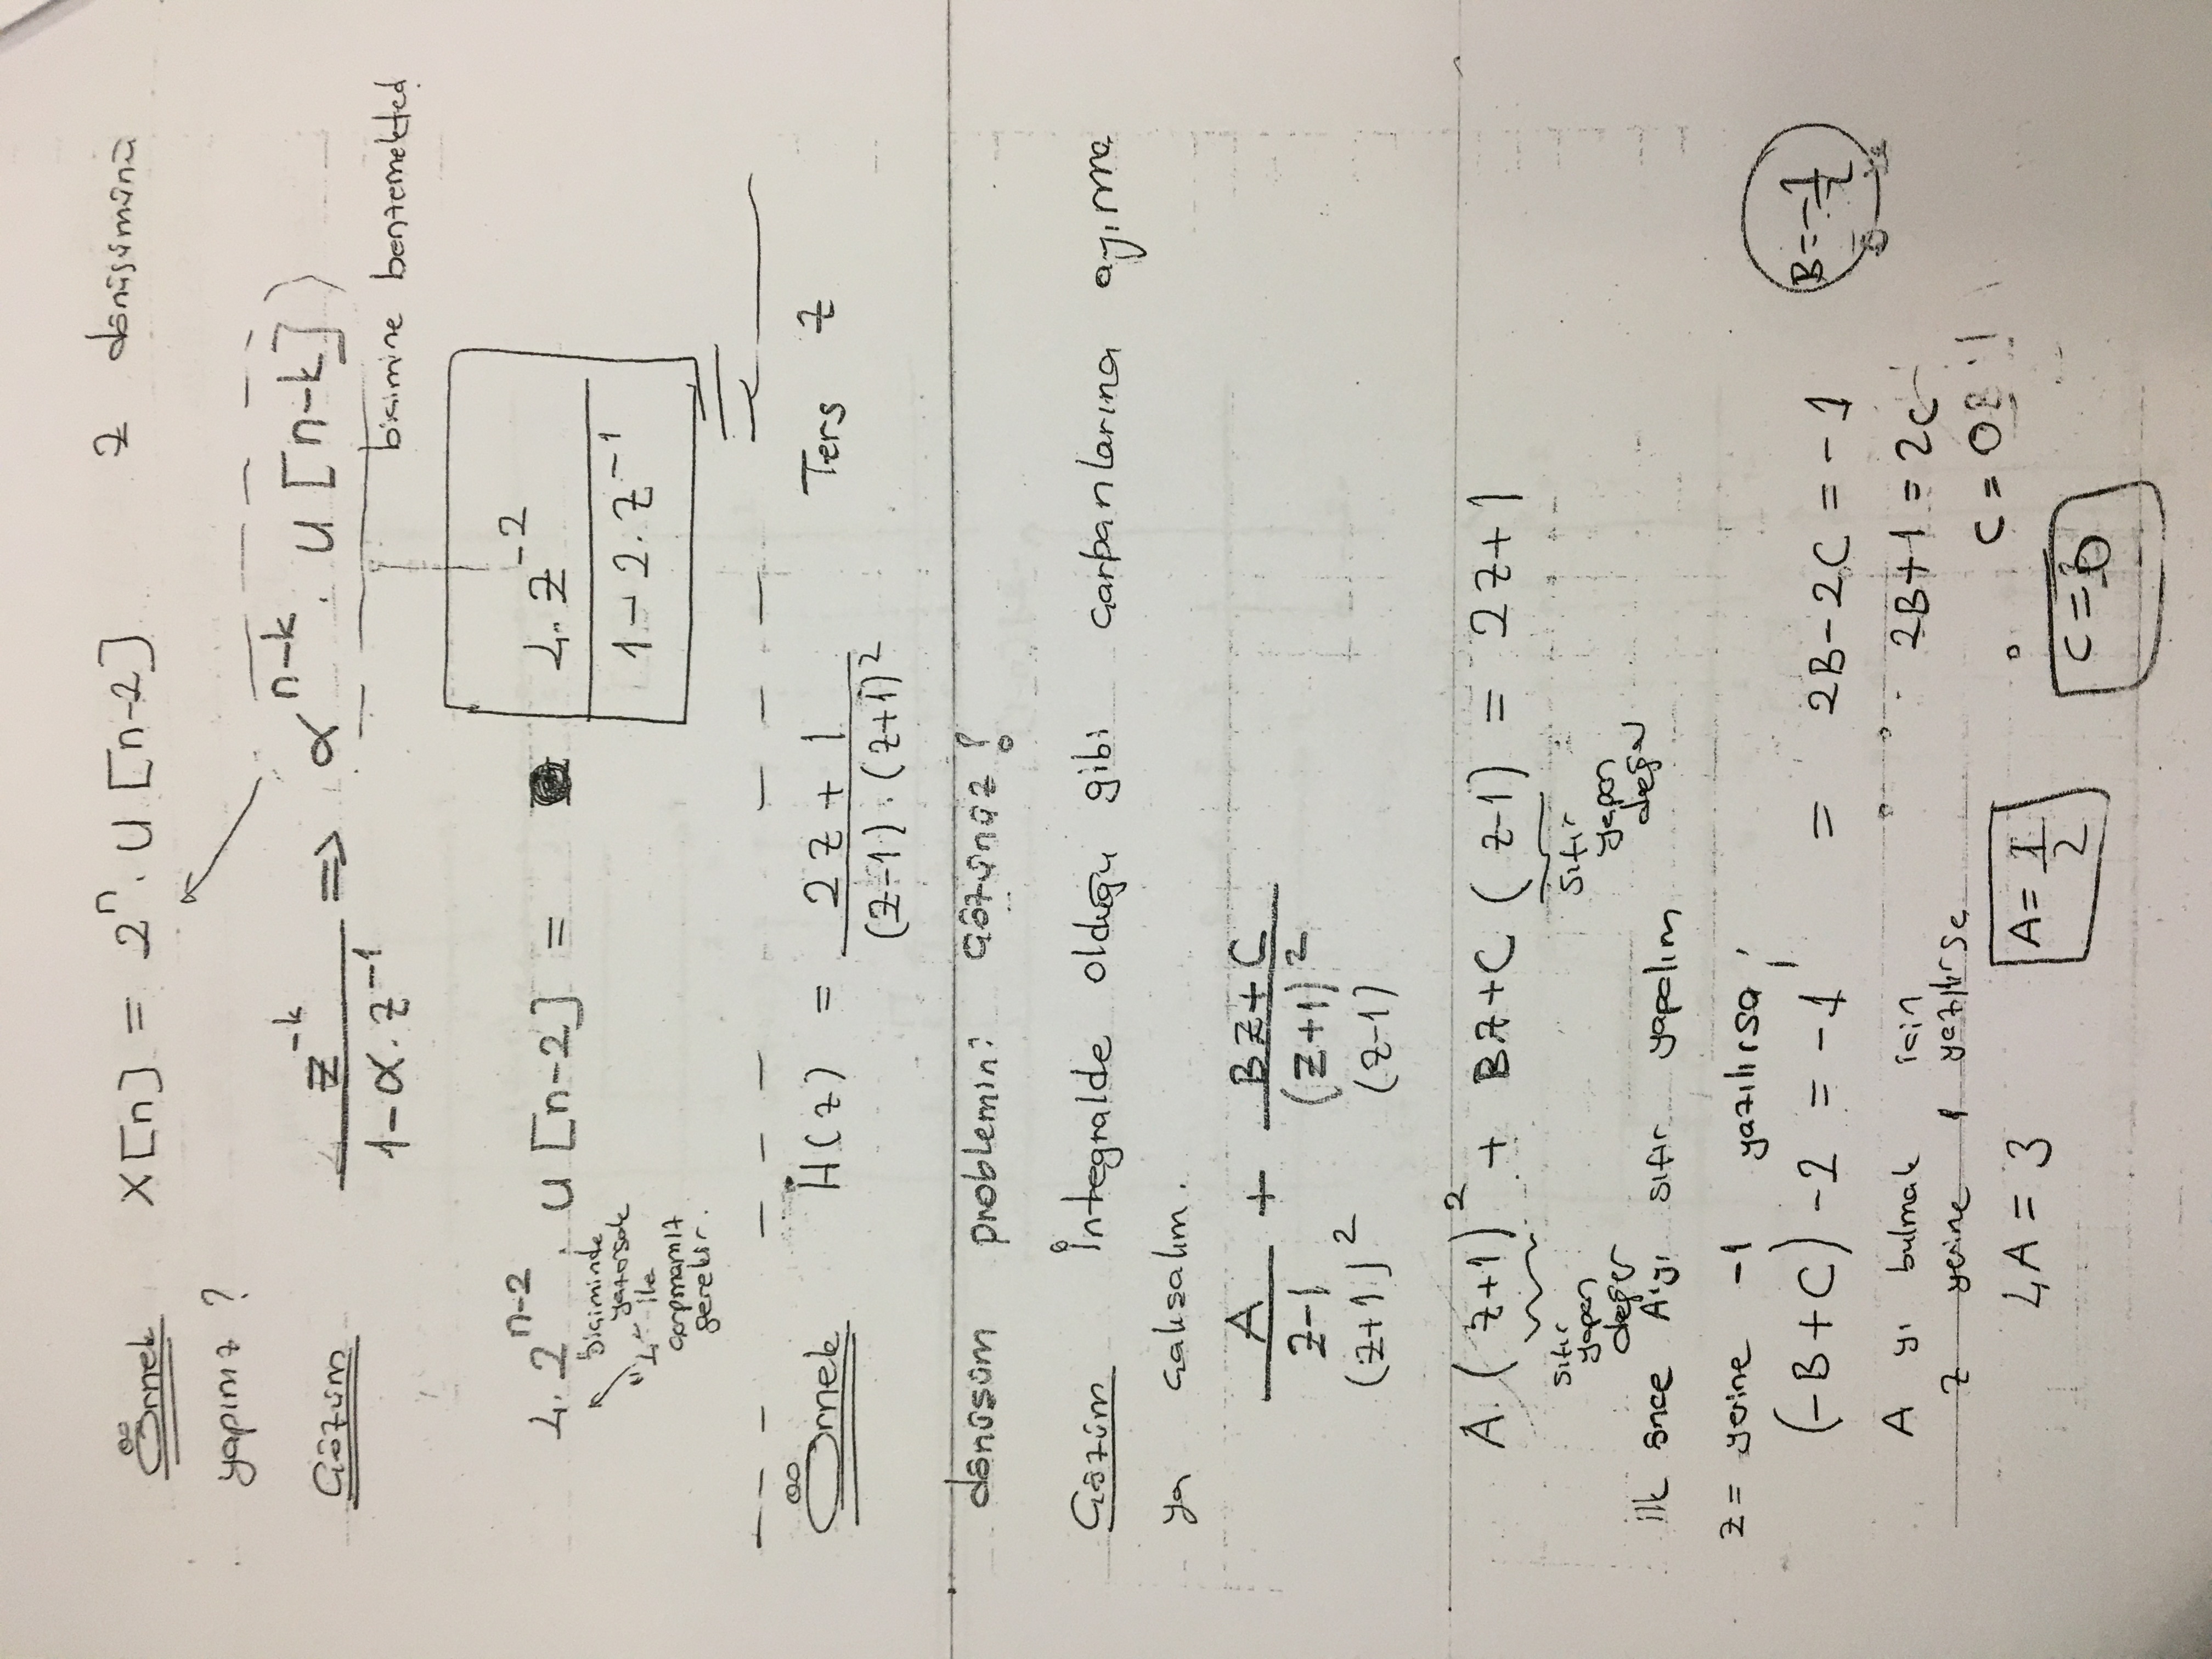 Örnek x[n] = 2^n . u[n-2] z dönüşümünü
yapınız ?
Çözüm z^-k / 1-α.z^-1 ⇒ α^n-k . u[n-k]
biçimine benzemekted
4.2^n-2 . u[n-2] = 4.z^-2 / 1-2.z^-1
biçiminde
yazarsak
"4" ile
çarpmamız
gerekir.
Örnek H(z) = 2z+1 / (z-1).(z+1)^2 Ters z
dönüşüm problemini çözünüz!
Çözüm İntegralde olduğu gibi çarpanlarına ayırma
ya çalışalım.
A / z-1 + Bz+C / (z+1)^2
(z+1)^2 (z-1)
A.(z+1)^2 + Bz+C (z-1) = 2z+1
sıfır yapan değer sıfır yapan değer
ilk önce A'yı sıfır yapalım
z = yerine -1 yazılırsa ;
(-B+C) -2 = -1 = 2B-2C = -1 B=-1/2
A yı bulmak için 2B+1 = 2C
z yerine 1 yazılırsa
C = 0
4A = 3 A = 1/2 C = 0